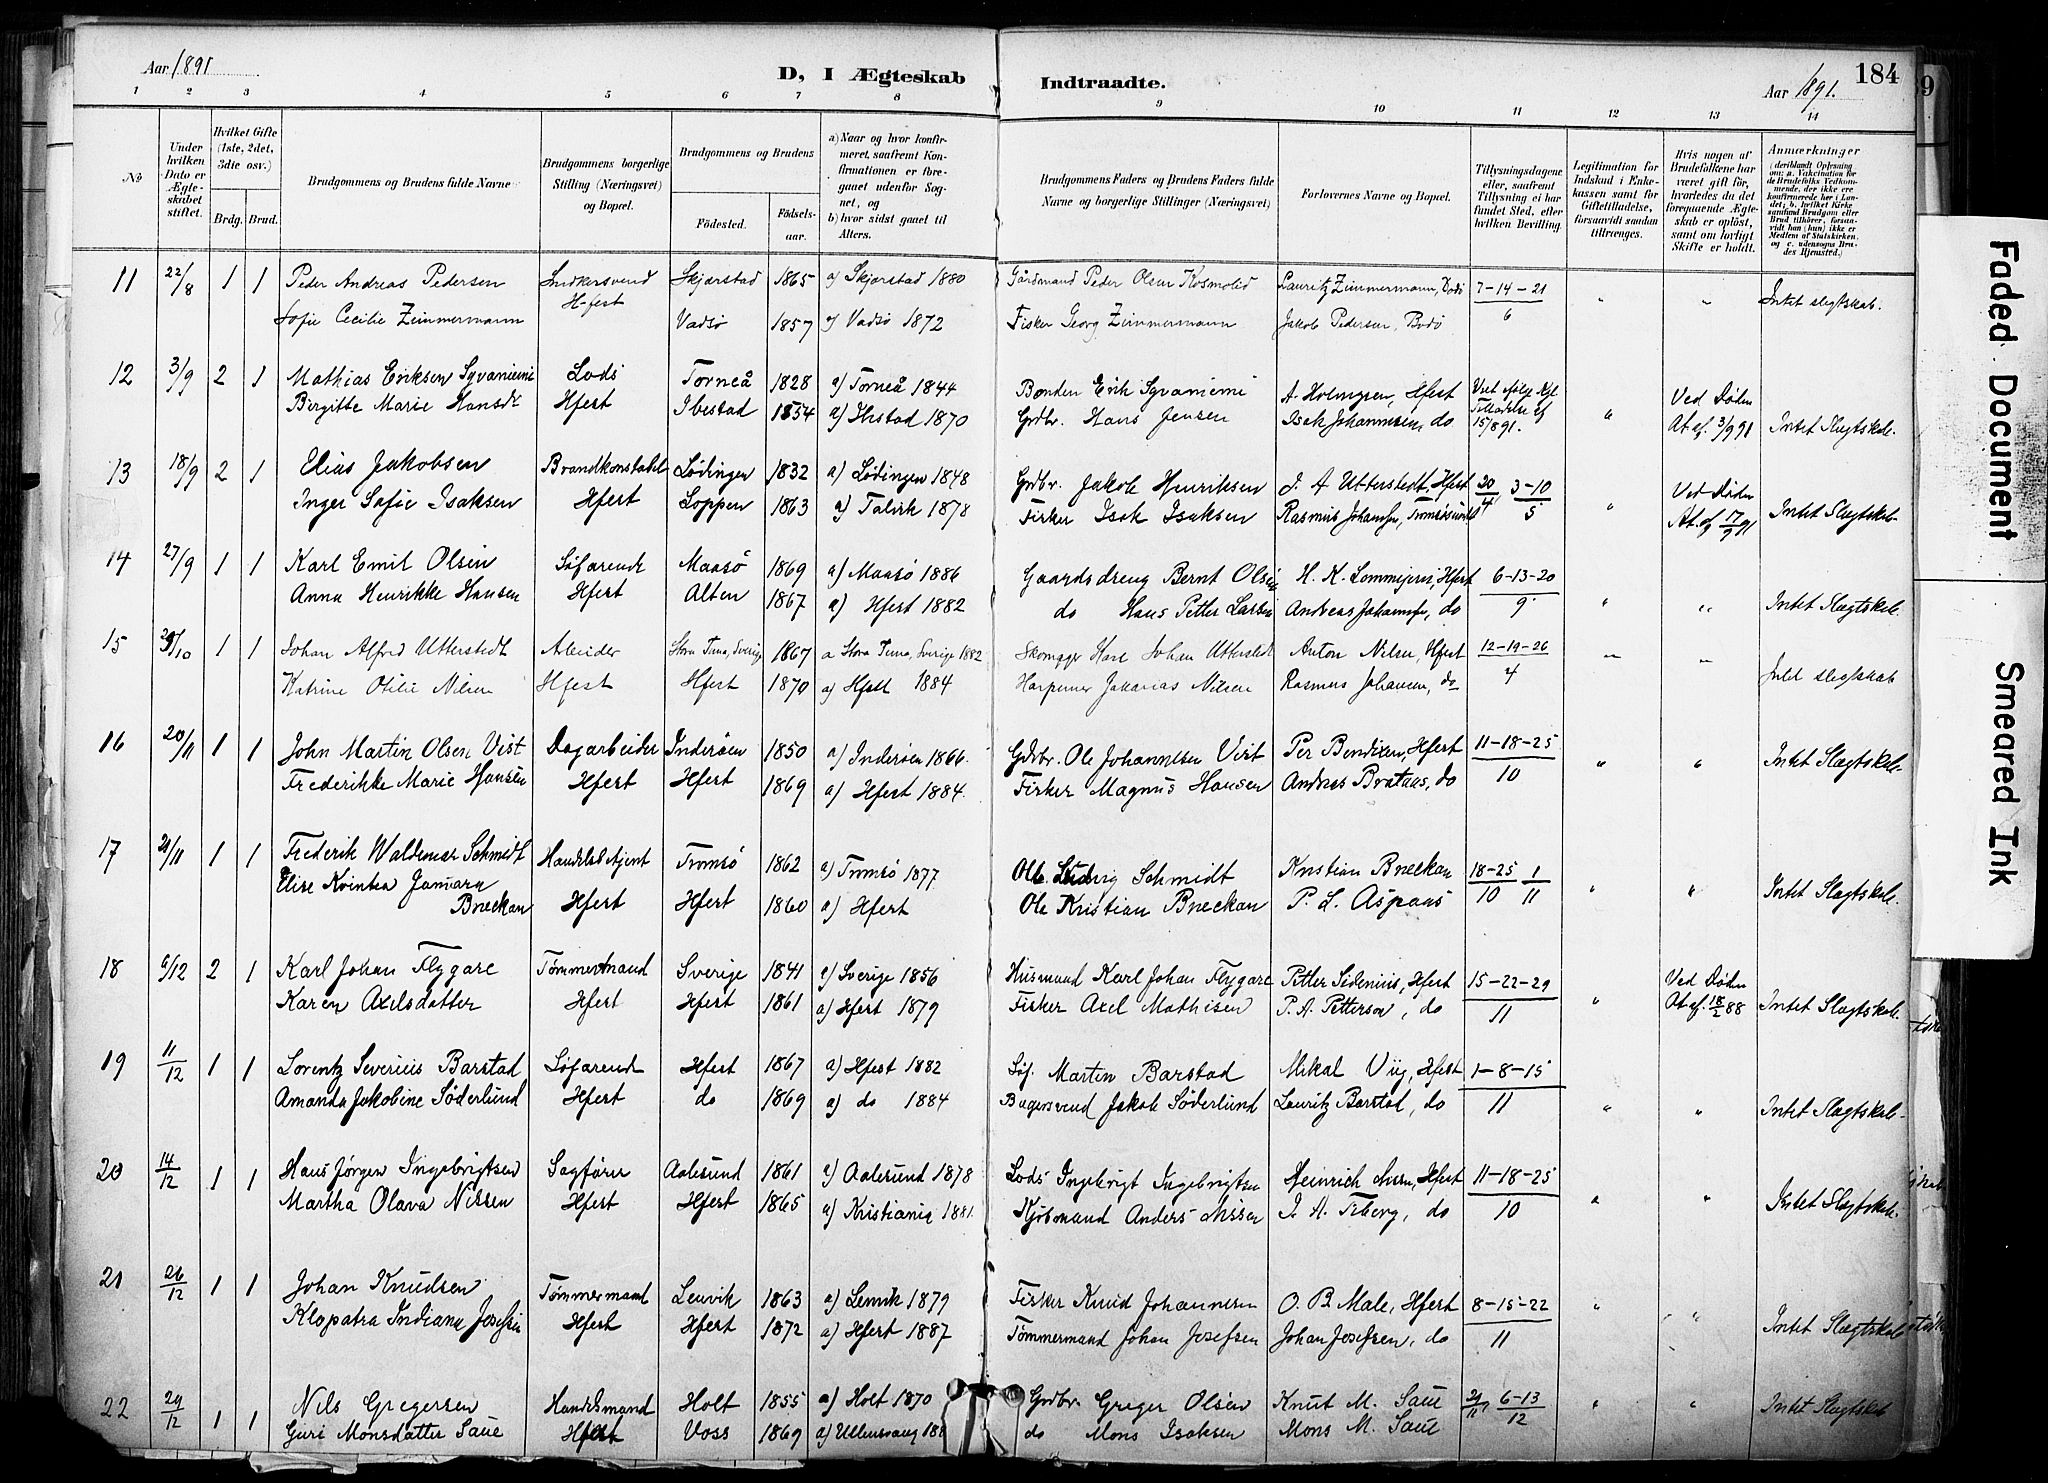 Aar 1891
D, I Ægteskab
Indtraadte.
Aar 1891.
184
1 2 3 4 5 6 7 8 9 10 11 12 13 14
No
Under hvilken Dato er Ægteskabet stiftet.
Hvilket Gifte (1ste, 2det, 3die osv.)
Brdg. Brud.
Brudgommens og Brudens fulde Navne
Brudgommens borgerlige Stilling (Næringsvei) og Bopæl.
Brudgommens og Brudens
Fødested. Fødselsaar.
a) Naar og hvor konfirmeret, saafremt Konfirmationen er foregaaet udenfor Sognet, og
b) hvor sidst gaaet til Alters.
Brudgommens Faders og Brudens Faders fulde Navne og borgerlige Stillinger (Næringsvei)
Forlovernes Navne og Bopæl.
Tillysningsdagene eller, saafremt Tillysning ei har fundet Sted, efter hvilken Bevilling.
Legitimation for Indskud i Enkekassen samt for Giftetilladelse, forsaavidt saadan tiltrænges.
Hvis nogen af Brudefolkene har været gift før, hvorledes da det foregaaende Ægteskab er opløst, samt om lovligt Skifte er holdt.
Anmærkninger (deriblandt Oplysning om: a. Vakcination for de Brudefolks Vedkommende, der ikke ere konfirmerede her i Landet; b. hvilket Kirkesamfund Brudgom eller Brud tilhører, forsaavidt han (hun) ikke er Medlem af Statskirken, og c. udensogns Brudes Hjemsted.)
11 22/8 1 1 Peder Andreas Pedersen Skjerstad 1865 a) Skjerstad 1880 Gårdmand Peder Olsen Kosmolid Lauritz Zimmermann, Bodø 7-14-21 " " Intet slegtskab.
Sofie Cecilie Zimmermann Hfest Vadsø 1857 a) Vadsø 1872 Fisker Georg Zimmermann Jakob Pedersen, Bodø 6
12 3/9 2 1 Mathias Eriksen Syvaniemi Lods Torneå 1828 a) Torneå 1844 Bonden Erik Syvaniemi A. Holmgren, Hfest Ved Døden
Birgitte Marie Hansdr Hfest Ibestad 1854 a) Ibestad 1870 Grdbr. Hans Jensen Isak Johannesen, do 15/8 91. " At af 3/9 91 Intet Slægtskab.
13 18/9 2 1 Elias Jakobsen Brandkonstabel Lødingen 1832 a) Lødingen 1848 Grdbr. Jakob Henriksen J. A. Utterstedt, Hfest 20/4, 3-10 Ved Døden
Inger Sofie Isaksen Hfest Loppen 1863 a) Talvik 1878 Fisker Isak Isaksen Rasmus Johansen, Tromsøsund 5 " At. af 17/9 91 Intet Slægtskab.
14 27/9 1 1 Karl Emil Olsen Søfarende Maasø 1869 a) Maasø 1886 Gaardsdreng Bernt Olsen 6-13-20
Anna Henrikke Hansen Hfest Alten 1867 a) Hfest 1882 do Hans Petter Larsen Andreas Johansen, do 9 " " Intet Slægtskab.
15 1 1 Johan Alfred Utterstedt Arbeider Stora Tuna, Sverige 1867 a Stora Tuna, Sverige 1882 Skomager Karl Johan Utterstedt Anton Nilsen, Hfest 12-19-26 " "
Katrine Otilie Nilsen Hfest Hfest 1870 a) Hfest 1884 Zakarias Nilsen Rasmus Johansen, do 4 Intet slegtskab
16 20/11 1 1 John Martin Olsen Vist Dagarbeider Inderøen 1850 a) Inderøen 1866. Grdbr. Ole Johannesen Vist Per Bendixen, Hfest 11-18-25
Frederikke Marie Hansen Hfest Hfest 1869 a) Hfest 1884. Fisker Magnus Hansen Andreas Brataas, do 10 " " Intet Slægtskab.
17 1 1 Frederik Waldemar Schmidt Handelsbetjent Tromsø 1862 a) Tromsø 1877. Ole Ludvig Schmidt Kristian Breckan 18-25 1
Elise Kvintea Januara
Breckan Hfest Hfest 1860 a) Hfest Ole Kristian Breckan P. L. Aspaas 10 11 " " Intet Slægtskab.
18 6/12 2 1 Karl Johan Flygare Tømmermand Sverige 1841 a) Sverige 1856 Husmand Karl Johan Flygare Petter Sidenius, Hfest 15-22-29 Ved Døden
Karen Axelsdatter Hfest Hfest 1861 a) Hfest 1879 Fisker Axel Mathisen P. A. Petterson, do 11 " At af. 18/2 88 Intet Slægtskab.
19 11/12 1 1 Lorentz Severius Barstad Søfarende Hfest 1867 a) Hfest 1882 Søf. Martin Barstad Mikal Viig, Hfest 1-8-15
Amanda Jakobine Søderlund Hfest do 1869 a) do 1884 Bagersvend Jakob Søderlund Lauritz Barstad, do 11 " " Intet Slægtskab.
20 14/12 1 1 Hans Jørgen Ingebrigtsen Sagfører Aalesund 1861 a) Aalesund 1878 Lods Ingebrigt Ingebrigtsen Heinrich Hfest 11-18-25
Martha Olava Nissen Hfest Hfest 1865 a) Kristiania 1881. Kjøbmand Anders Nissen J. A. Friberg, do 10 " " Intet Slægtskab.
21 26/12 1 1 Johan Knudsen Tømmermand Lenvik 1863 a) Lenvik 1879 Fisker Knud Johannesen O. B. Male, Hfest 8-15-22 " "
Klopatra Indiana Josefsen Hfest Hfest 1872 a) Hfest 1887 Tømmermand Johan Josefsen Johan Josefsen, do 11 Intet Slægtskab
22 29/12 1 1 Nils Gregersen Handelsmand Holt 1855 a) Holt 1870 Grdbr Greger Olsen Knut M. Saue 29/11, 6-13 " " Intet Slægtskab
Guri Monsdatter Saue Hfest Voss 1869 a) Ullensvang 188 do Mons Isaksen Mons M. Saue 12
Faded Document
Smeared Ink